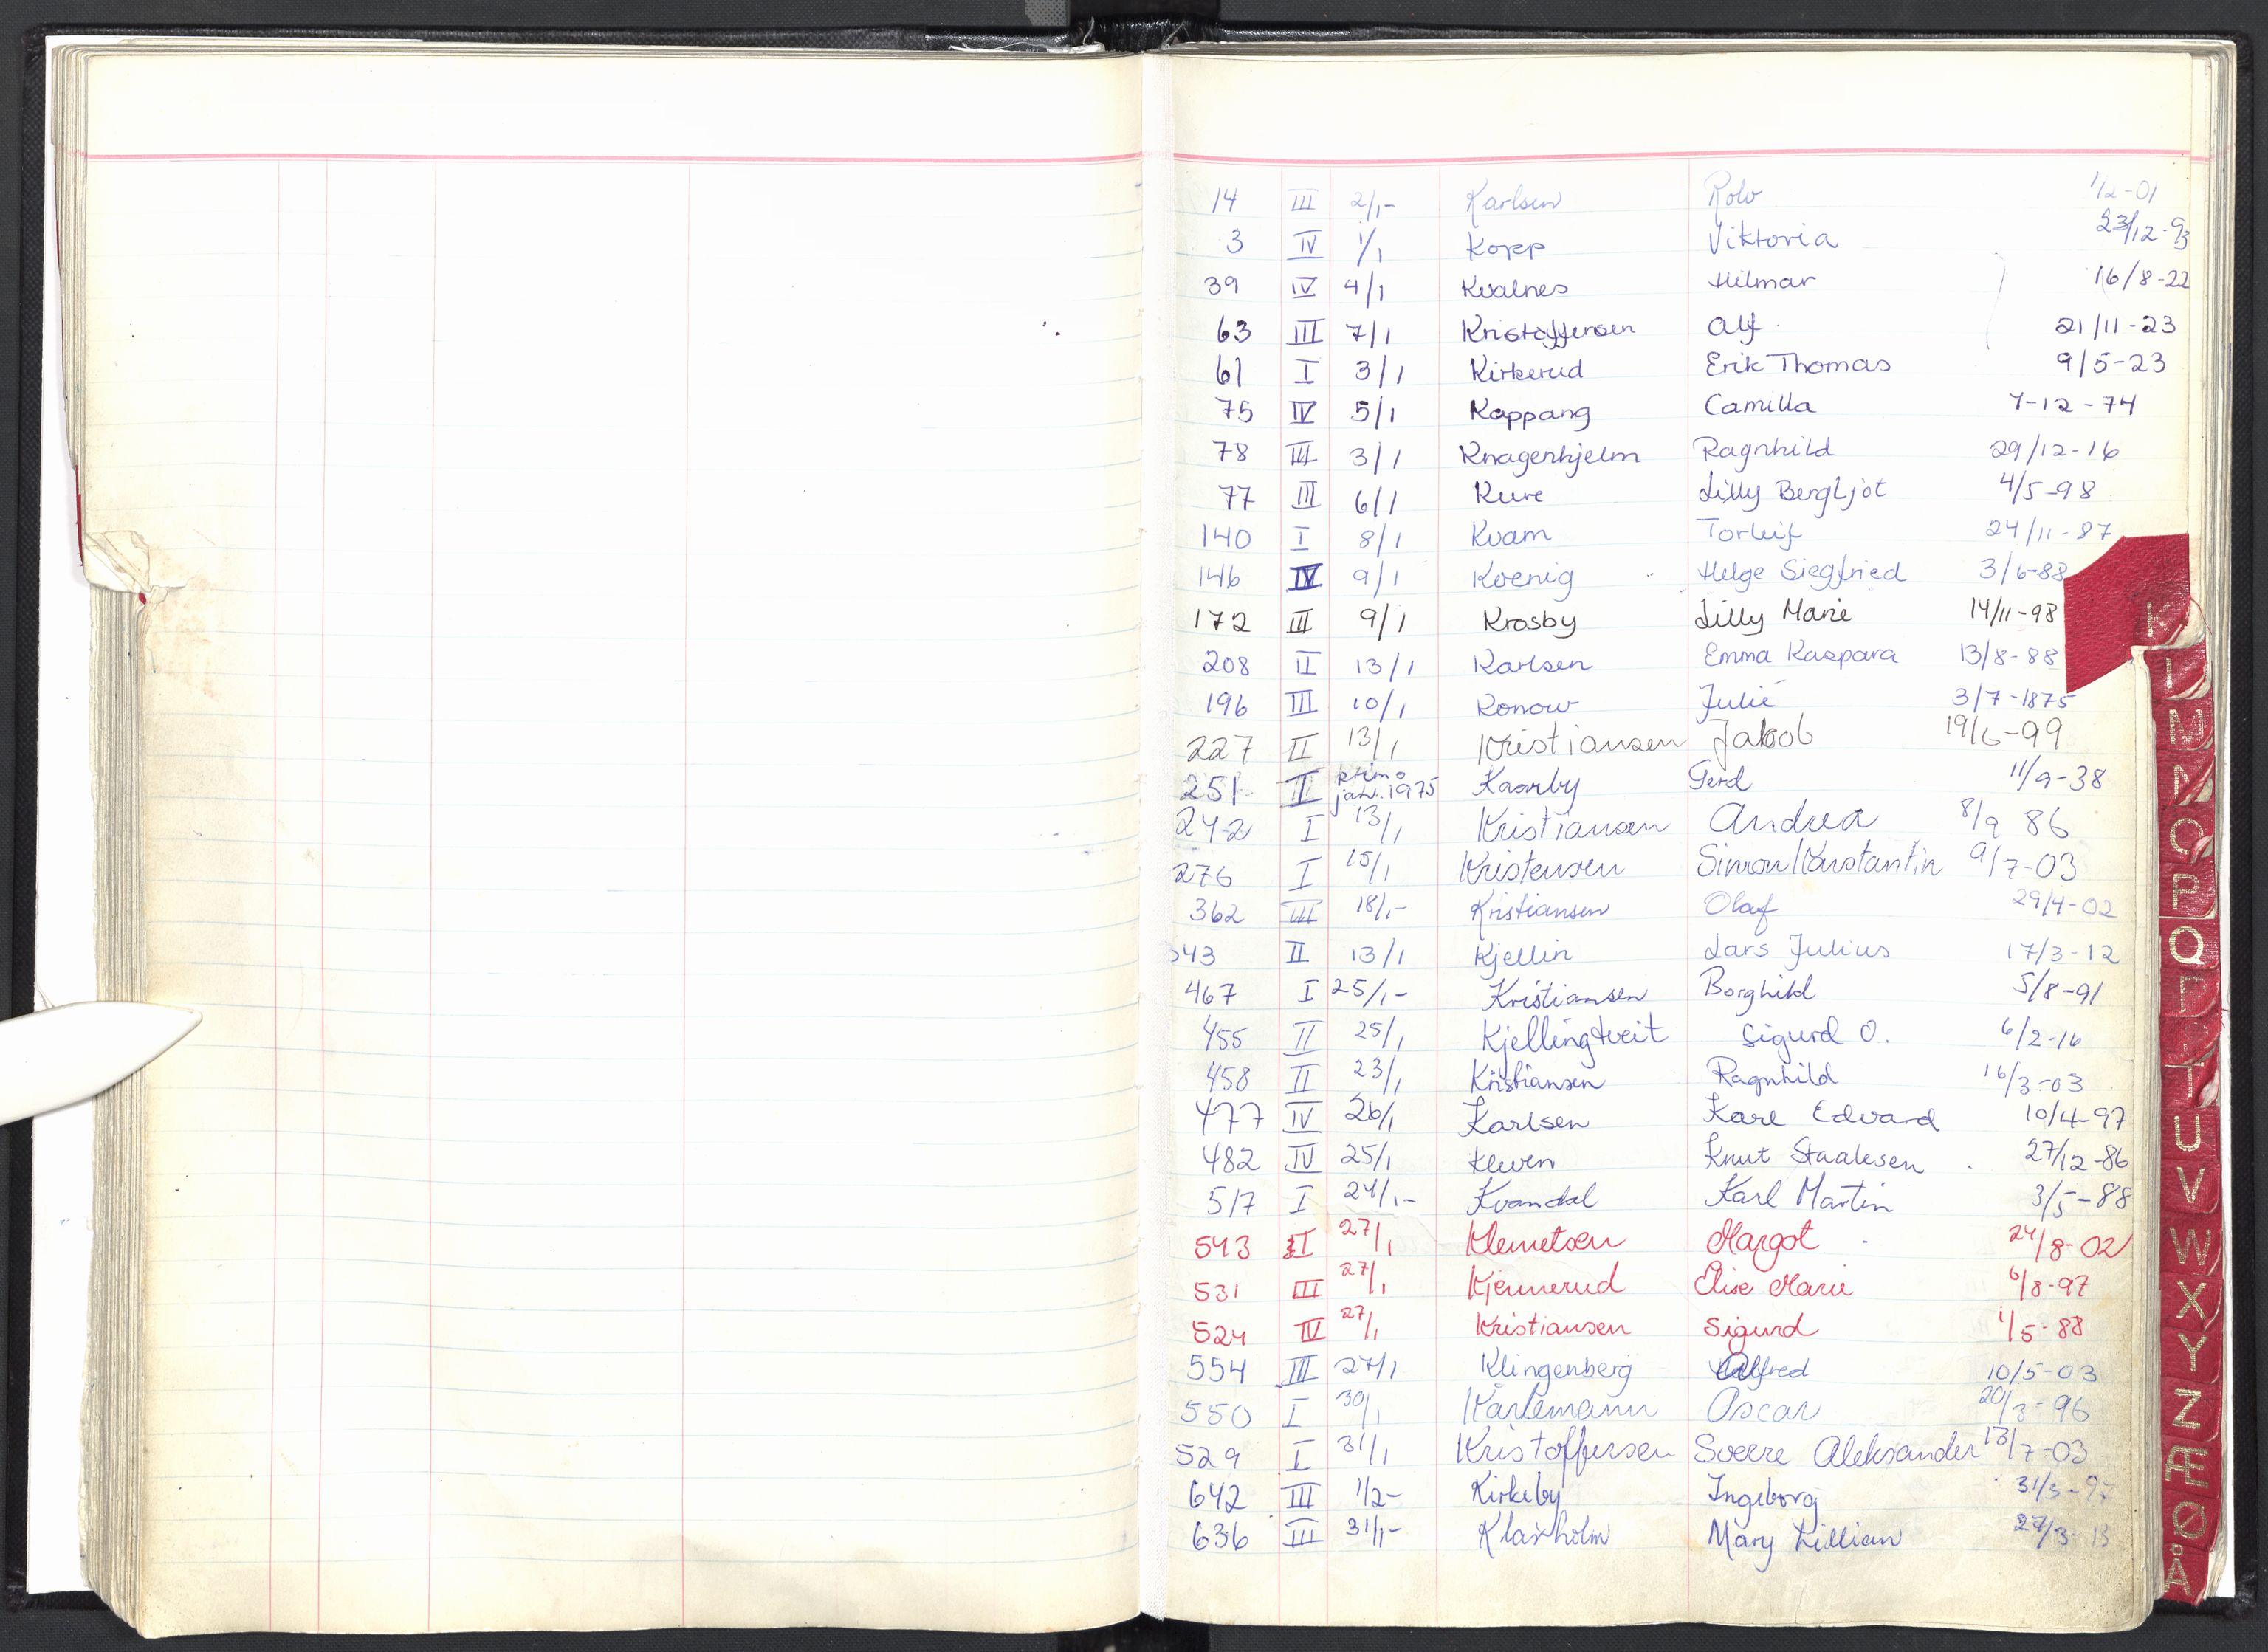 14 III 2/1- Karlsen Rolv 1/12-01
3 IV 1/1 Kopp Viktoria 23/12-93
39 IV 4/1 Kvalnes Hilmar 16/8-22
63 III 7/1 Kristoffersen Alf 21/11-23
61 I 3/1 Kirkerud Erik Thomas 9/5-23
75 IV 5/1 Kappang Camilla 7-12-74
78 III 3/1 Knagenhjelm Ragnhild 29/12-16
77 III 6/1 Kure Lilly Bergljot 4/5-98
140 I 8/1 Kvam Torleif 24/11-87
146 IV 9/1 Koenig Helge Siegfried 3/6-88
172 III 9/1 Krosby Lilly Marie 14/11-98
208 II 13/1 Karlsen Emma Kaspara 13/8-88
196 III 10/1 Konow Julie 3/7-1875
227 II 13/1 Kristiansen Jakob 19/6-99
251 II primo jan. 1975 Kaarby Gerd 11/9-38
242 I 13/1 Kristiansen Andrea 8/9 86
276 I 15/1 Kristensen Simon Konstantin 9/7-03
362 III 18/1- Kristiansen Olaf 29/4-02
343 II 13/1 Kjellin Lars Julius 17/3-12
467 I 25/1- Kristiansen Borghild 5/8-91
455 II 25/1 Kjellingtveit Sigurd O. 6/2-16
458 II 23/1 Kristiansen Ragnhild 16/3-03
477 IV 26/1 Karlsen Kare Edvard 10/4-97
482 IV 25/1 Kleven Knut Staalesen 27/12-86
517 I 24/1- Kvandal Karl Martin 3/5-88
543 II 27/1 Klemetsen Margot 24/8-02
531 III 27/1 Kjennerud Elise Marie 6/8-97
524 IV 27/1 Kristiansen Sigurd 1/5-88
554 III 27/1 Klingenberg Alfred 10/5-03
550 I 30/1 Kärlemann Oscar 20/3-96
529 I 31/1 Kristoffersen Sverre Aleksander 13/7-03
642 III 1/2- Kirkeby Ingeborg 31/3-97
636 III 31/1- Klaxholm Mary Lillian 27/3-13
K
L
M
N
O
P
Q
R
S
T
U
V
W
X
Y
Z
Æ
Ø
Å